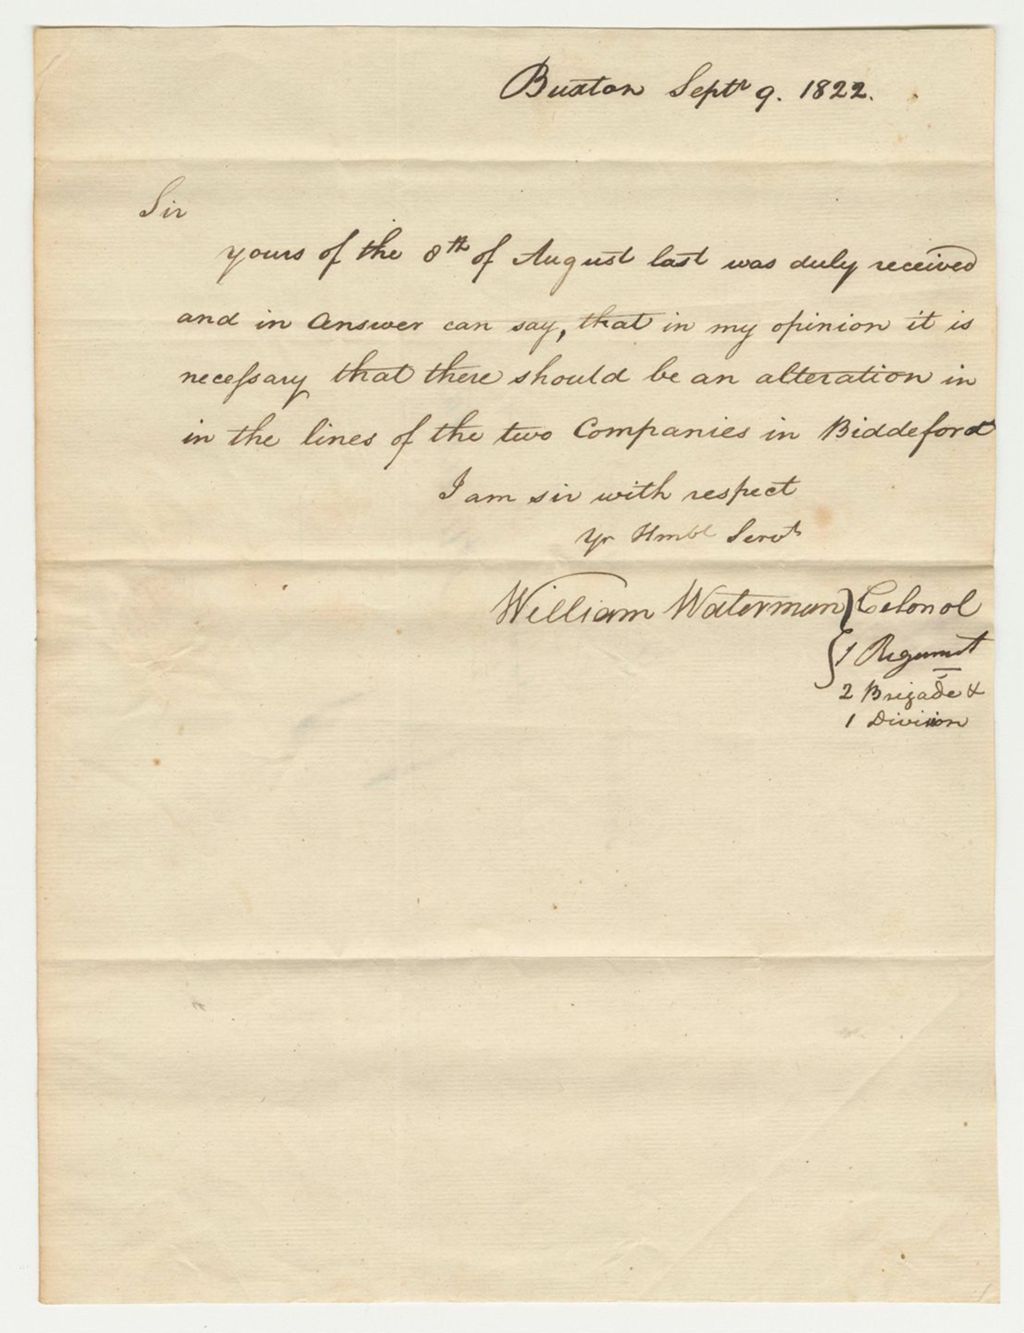 Buxton Septr 9. 1822.
Sir
yours of the 8th of August last was duly received
and in Answer can say, that in my opinion it is
necessary that there should be an alteration in
in the lines of the two Companies in Biddeford
I am sir with respect
Yr Hmbl Servt
William Waterman } Colonol
{ 1 Regument
2 Brigade &
1 Division